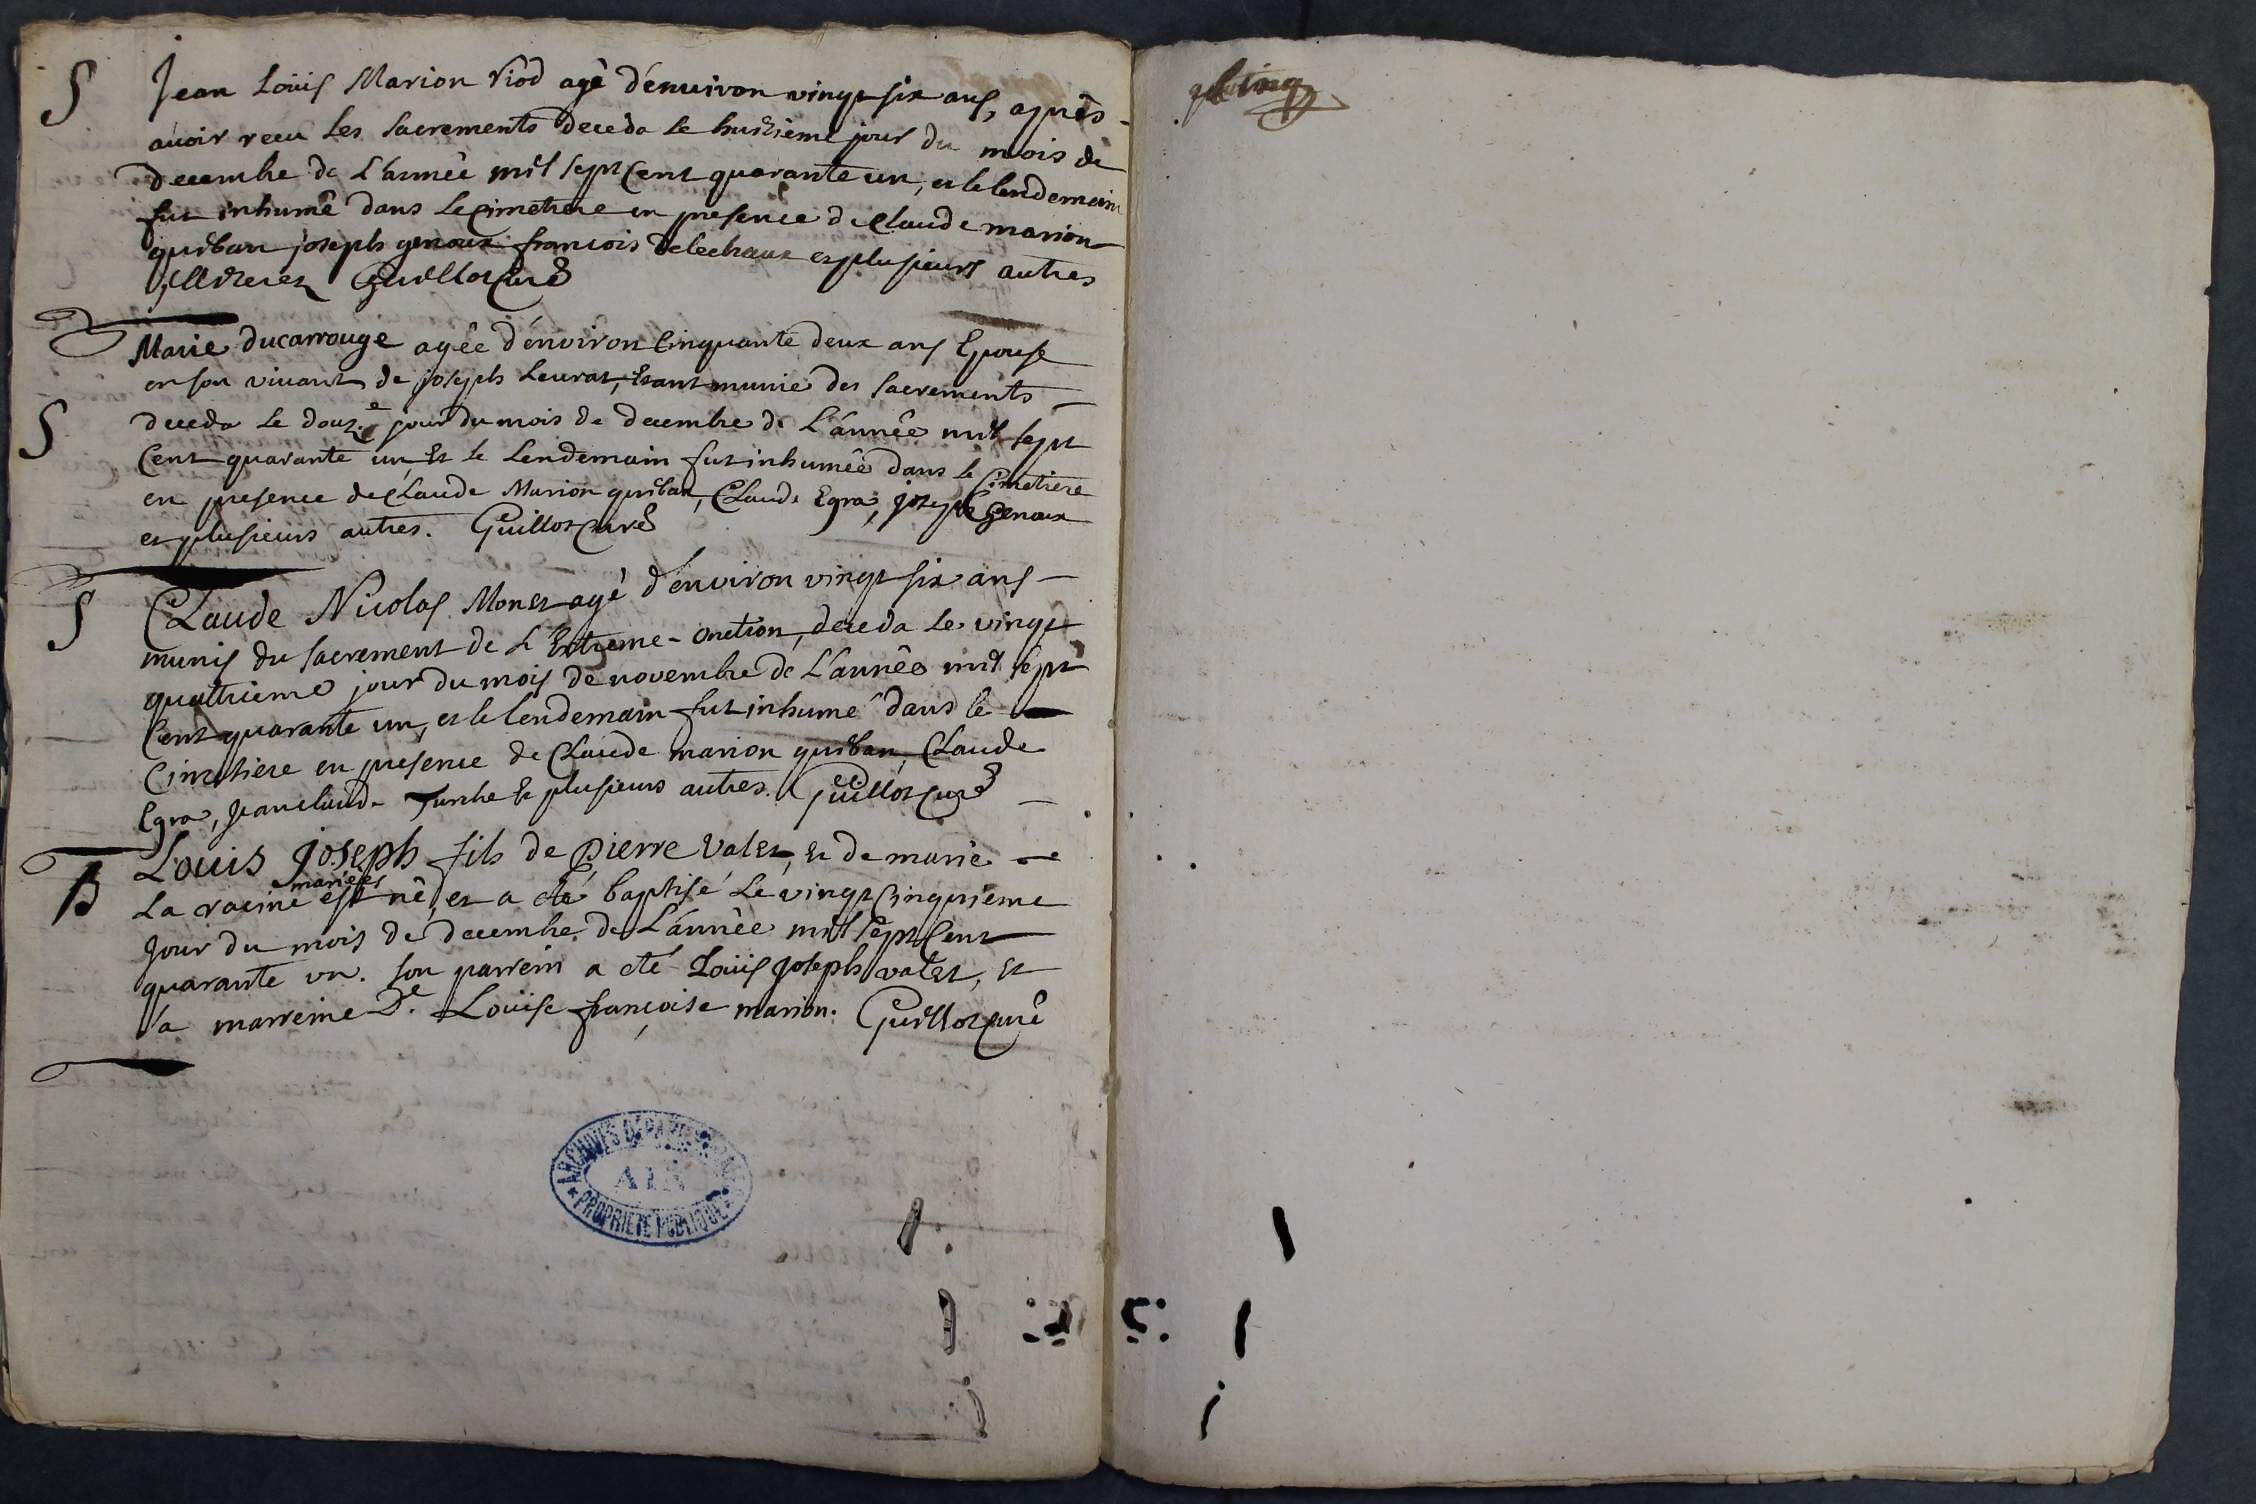 S Jean Loüis Marion Viod agé d'environ vingt six ans, après
avoir recu les sacrements deceda le huitieme jour du mois de
decembre de L'année mil sept cent quarante un, et le lendemain
fut inhumé dans le cimetiere en presence de claude marion
quiban joseph genoux françois delechaux et plusieurs autres
Guillot Curé
Marie ducarrouge agée d'environ cinquante deux ans Epouse
en son vivant de joseph Levrat, Etant munie des sacrements
S deceda le douz.e jour du mois de decembre de L'année mil sept
Cent quarante un, Et le Lendemain fut inhumée dans le Cimetiere
en presence de Claude Marion quiban, Claude Egra, joseph Genoux
et plusieurs autres. Guillot Curé
S Claude Nicolas Monet agé d'environ vingt six ans
munis du sacrement de L'Extreme-onction, deceda le vingt
quattrieme jour du mois de novembre de L'année mil sept
Cent quarante un, et le lendemain fut inhumé dans le
Cimetiere en presence de Claude marion quiban, Claude
Egra, jean claude Et plusieurs autres. Guillot Curé
Louis joseph fils de Pierre Valet, et de marie
mariées
B La racine est né, et a eté baptisé Le vingt Cinquieme
Jour du mois de decembre de L'année mil sept Cent
quarante un. son parrein a eté Loüis joseph valet, et
sa marreine D.e Loüise françoise marion. Guillot Curé
ARCHIVES DÉPARTEMENTALES
AIN
PROPRIÉTÉ PUBLIQUE